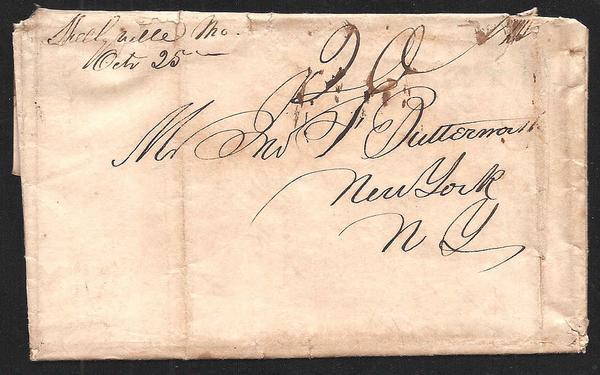 Shelbyville Mo.
Octr 25
Mr Jno F Butterworth
New York
N Y